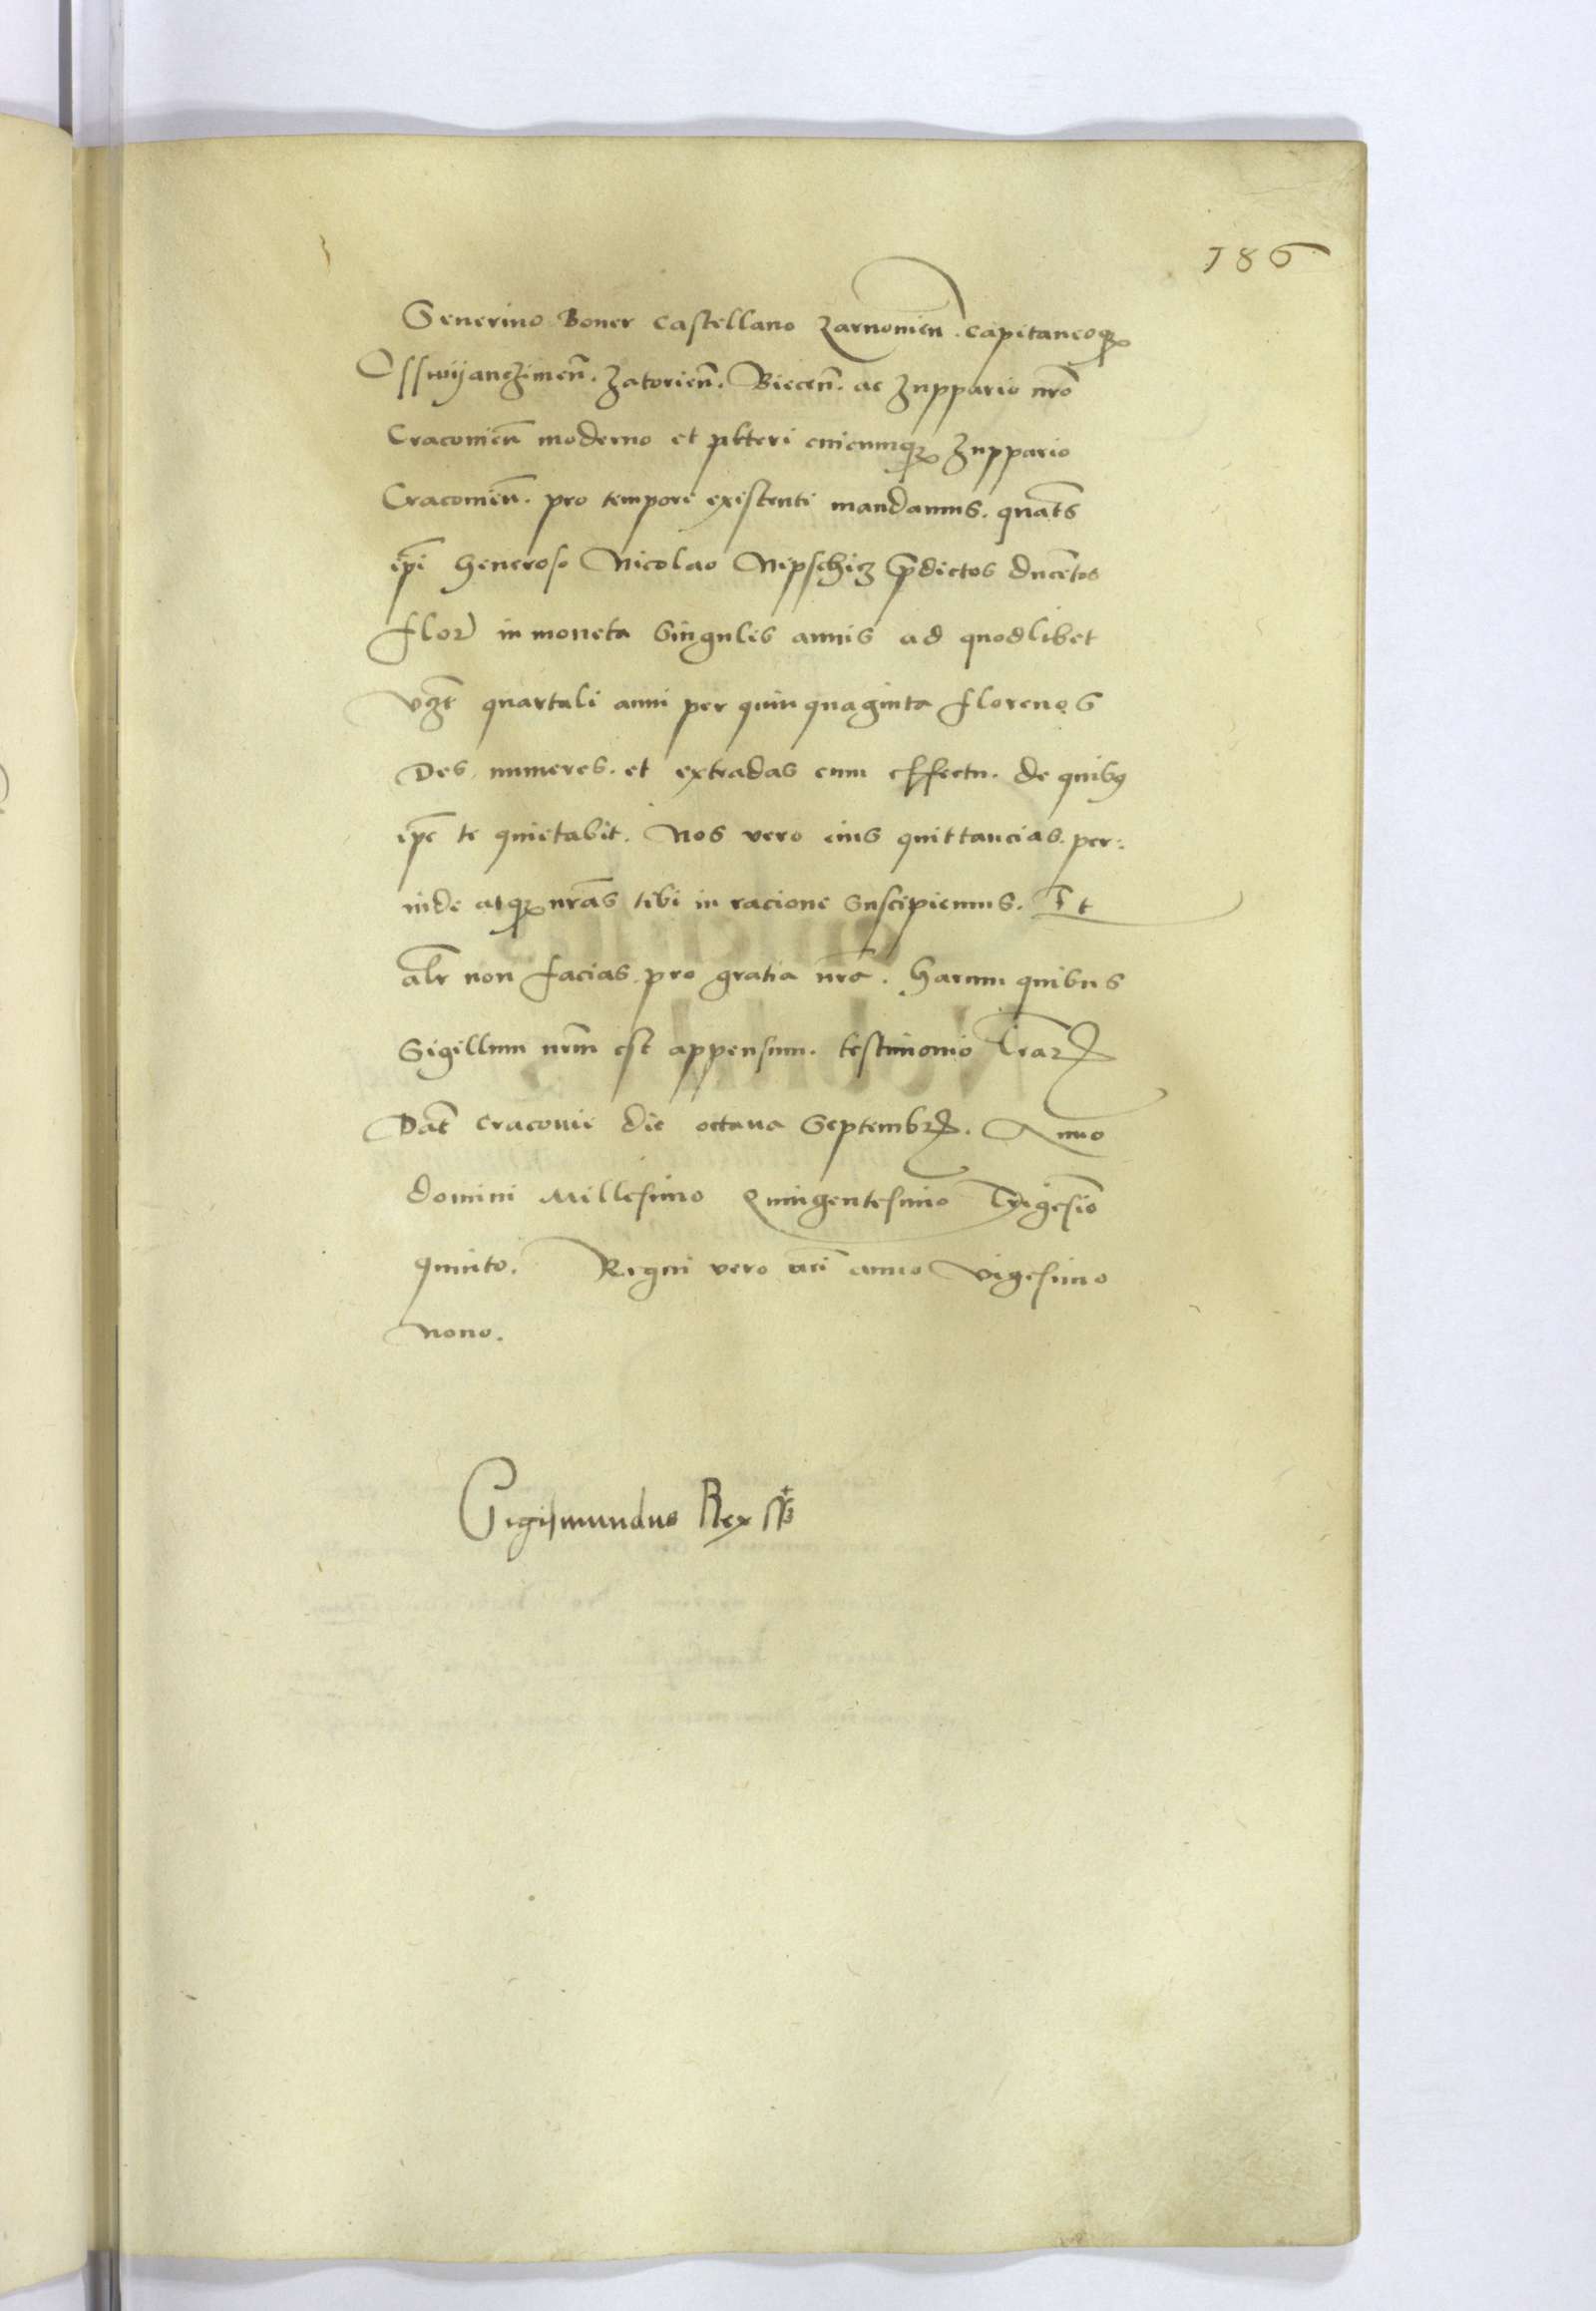 186
Severino Boner Castellano Zarnowien̄. Capitaneoqꝫ
Osswyanczimen̄. Zatorien̄. Biecen̄. ac Zuppario nr̄o
Cracovien̄ moderno et alteri cuicumqꝫ Zuppario
Cracovien̄. pro tempore existenti mandamus. quat̄s
ip̄i Generoso Nicolao Nipschicz p̄dictos ducētos
flor in moneta Singulis annis ad quodlibet
vꝫt quartali anni per quinquaginta florenos
Des, numeres. et extradas cum effectu. de quibꝰ
ip̄e te quietabit. Nos vero eius quittancias. per:
inde atqꝫ nr̄as tibi in racione Suscipiemus. Et
alr̄ non facias pro gratia nr̄a. Harum quibus
Sigillum nr̄m est appensum. testimonio Lr̄aꝝ
Dat̄ Cracovie die octava Septembꝝ. Anno
domini Millesimo Quingentesimo Trigesīo
quinto. Regni vero nr̄i anno Vigesimo
Nono.
Sigismundus Rex ſſt